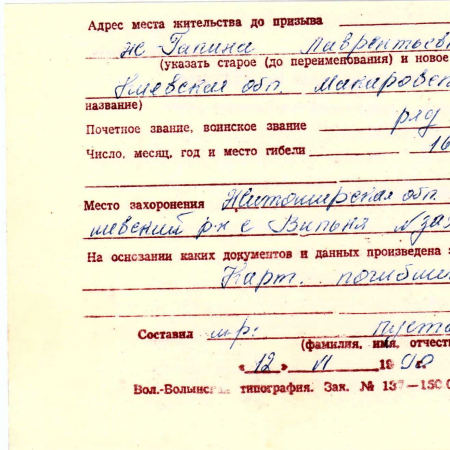 Адрес места жительства до призыва
ж Галина Лаврентьевн
(указать старое (до переименования) и новое
Киевская обл. Макаровск
название)
Почетное звание, воинское звание ряд
Число, месяц, год и место гибели 16
Место захоронения Житомирская обл.
шевский р-н с Вильня №
На основании каких документов и данных произведена з
Карт. погибши
Составил м-р: пусто
(фамилия, имя, отчест
«12» VI 1990г.
Вол.-Волынская типография. Зак. № 137—150